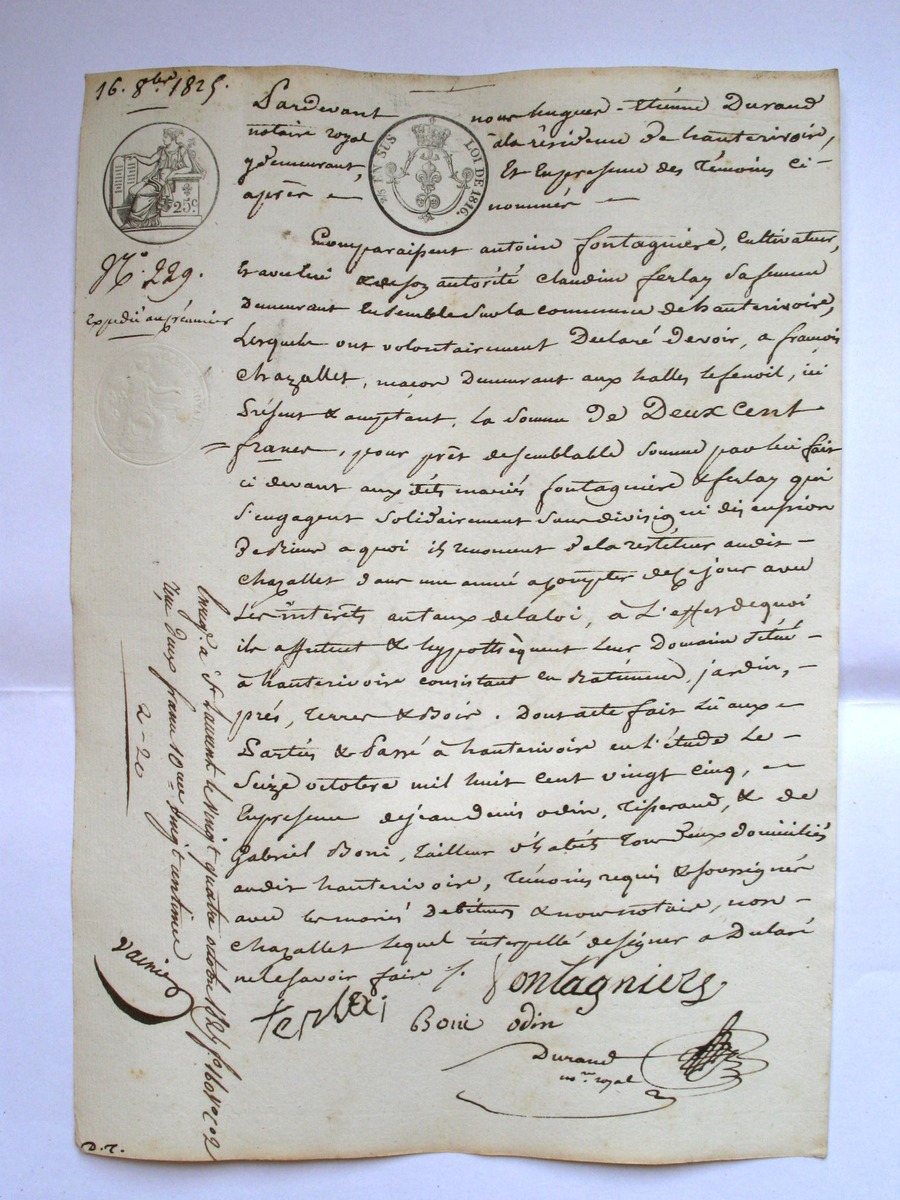 16. 8bre 1825.
Pardevant nous hugues-étienne Durand
notaire royal à la résidence de hauterivoire,
y demeurant, Et En présence des témoins ci-
après nommés
25 EN SUS
LOI DE 1816.
25c
Comparaissent antoine fontagniere, Cultivateur,
Et de son autorité claudine ferlay sa femme
Demeurant Ensemble sur la commune de hauterivoire,
N°. 229.
Expédié au créancier
Lesquels ont volontairement Déclaré Devoir, a françois
Chazallet, maçon Demeurant aux halles lefenoil, ici
Présent & acceptant, la Somme De Deux Cent
francs, pour prêt de semblable Somme par lui fait
ci devant aux dits mariés fontagniere & ferlay qui
s'engagent Solidairement Sans division ni discussion
de la restituer audit
Chazallet dans une année a compter de ce jour avec
Les intérêts au taux de la loi, à L'effet de quoi
ils affectent & hypothèquent leur Domaine Situé
à hauterivoire consistant En Bâtiments, jardin,
prés, terres & Bois. Dont acte fait Lû aux
Parties & Passé à hauterivoire en l'étude Le
Seize octobre mil huit cent vingt cinq,
En présence de jean Denis odin, tisserand, & de
Gabriel Boni, tailleur d'habits tous Deux domiciliés
audit hauterivoire, témoins requis & soussignés
avec les mariés Debiteurs & nous notaire, non
Chazallet lequel interpellé de signer a Déclaré
ne le savoir faire /.
fontagniere
ferlai
Boni odin
Durand
nre. royal
Enreg. à St Laurent le vingt quatre octobre 1825 f° 160 v° c 2
reçu deux francs 10me vingt centimes
2-20
D.T.